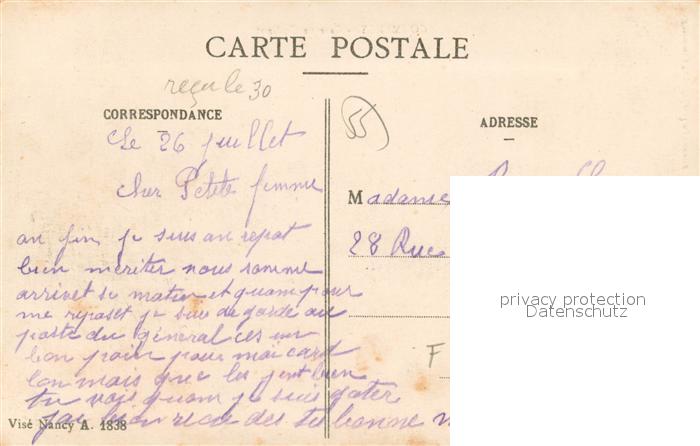 CARTE POSTALE
reçu le 30
CORRESPONDANCE
ADRESSE
Le 26 juillet
cher Petite femme
Madame
28 Rue
an fin je suis au repot
bien mériter nous somme
arrivet se matin et quam pour
me repaset je suis de garde au
poste du général ces un
bon poin pour moi card
lon mais que les gent bien
tu vois quam je suis gater
jai bien recu des tu bonne
F
Visé Nancy A. 1838
privacy protection
Datenschutz